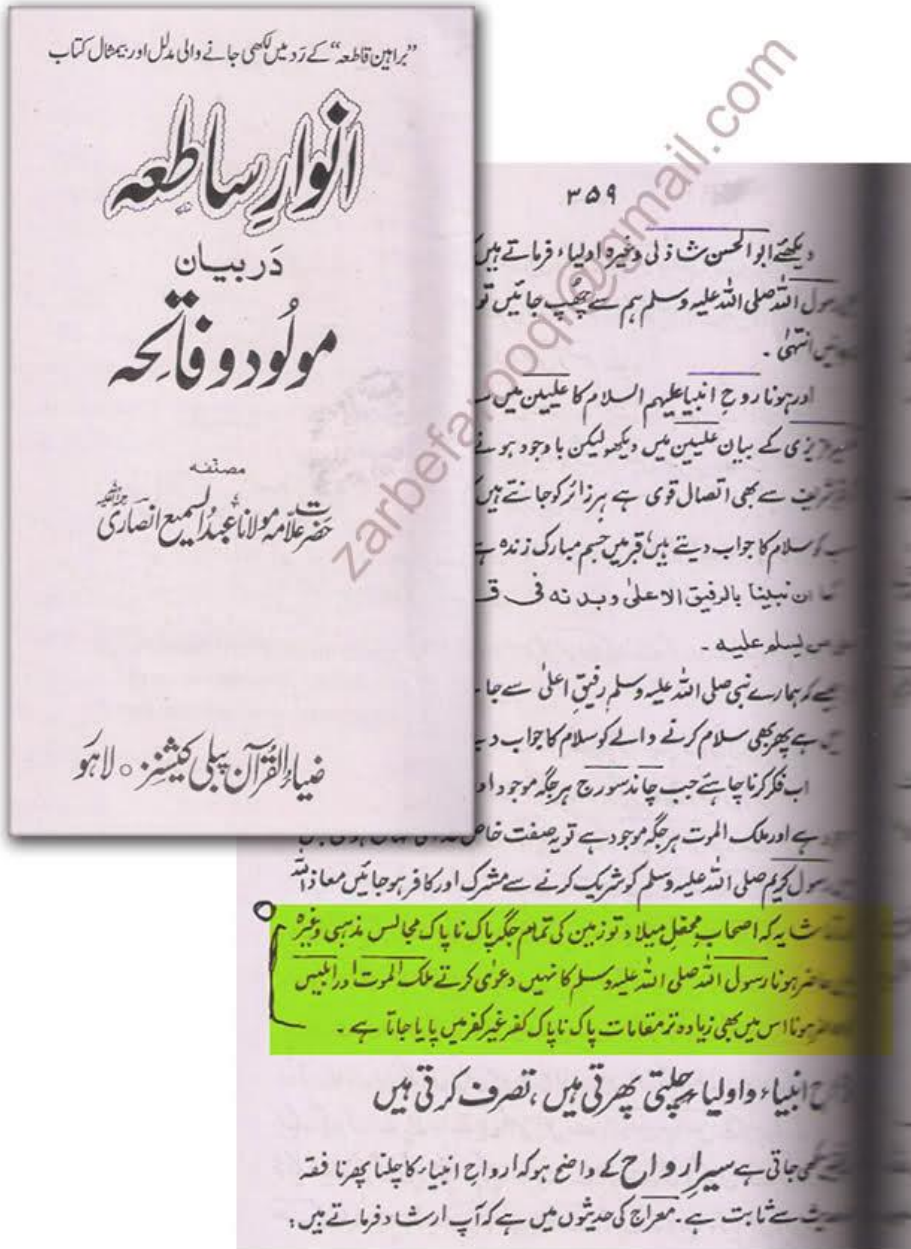 ”براہین قاطعہ“ کے رَد میں لکھی جانے والی مدلل اور بیمثال کتاب
انوارِ ساطعہ
دَر بیان
مولُود و فاتحہ
مصنفہ
حضرت علامہ مولانا عبدُالسمیع انصاری رحمۃاللہ علیہ
ضیاءُالقرآن پبلی کیشنز ○ لاہور
zarbefarooqi@gmail.com
۳۵۹
دیکھئے ابو الحسن شاذلی وغیرہ اولیاء فرماتے ہیں
رسول اللہ صلی اللہ علیہ وسلم ہم سے چھپ جائیں تو
انتہٰی ۔
اور ہونا روحِ انبیا علیہم السلام کا علیین میں
کے بیان علیین میں دیکھو لیکن باوجود ہونے
شریف سے بھی اتصال قوی ہے ہر زائر کو جانتے ہیں
سلام کا جواب دیتے ہیں قبر میں جسم مبارک زندہ ہے
ان نبینا بالرفیق الاعلیٰ وبدنہ فی
یسلم علیہ ۔
کہ ہمارے نبی صلی اللہ علیہ وسلم رفیقِ اعلیٰ سے جا
ہے پھر بھی سلام کرنے والے کو سلام کا جواب
اب فکر کرنا چاہئے جب چاند سورج ہر جگہ موجود
ہے اور ملک الموت ہر جگہ موجود ہے تو یہ صفت خاص
رسول کریم صلی اللہ علیہ وسلم کو شریک کرنے سے مشرک اور کافر ہو جائیں معاذ اللہ
یہ کہ اصحابِ محفلِ میلاد تو زمین کی تمام جگہ پاک ناپاک مجالس مذہبی وغیرہ
حاضر ہونا رسول اللہ صلی اللہ علیہ وسلم کا نہیں دعوٰی کرتے ملک الموت اور ابلیس
ہونا اس میں بھی زیادہ تر مقامات پاک ناپاک کفر غیر کفر میں پایا جاتا ہے ۔
انبیاء و اولیاء چلتی پھرتی ہیں ، تصرف کرتی ہیں
جاتی ہے سیر ارواح کے واضح ہو کہ ارواحِ انبیاء کا چلنا پھرنا فقہ
سے ثابت ہے ۔ معراج کی حدیثوں میں ہے کہ آپ ارشاد فرماتے ہیں :